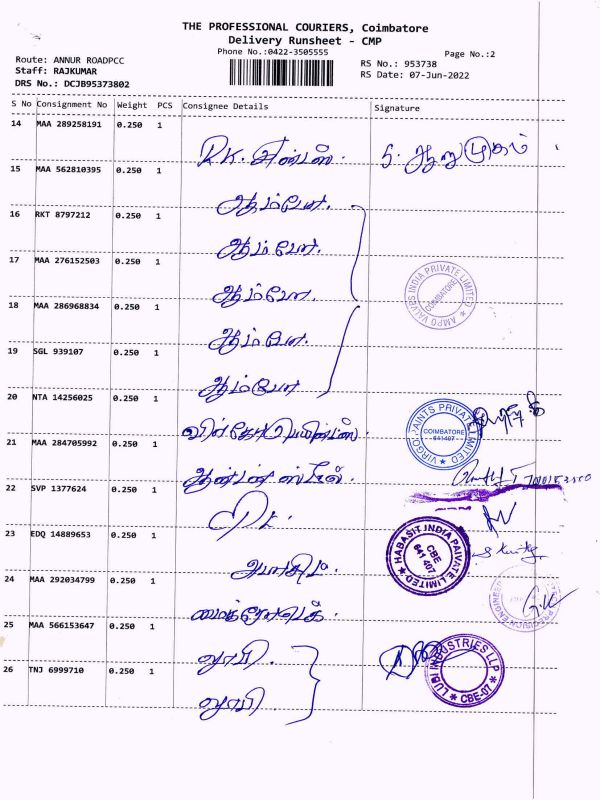 THE PROFESSIONAL COURIERS, Coimbatore
Delivery Runsheet - CMP
Phone No.:0422-3505555
Page No.:2
Route: ANNUR ROADPCC
RS No.: 953738
Staff: RAJKUMAR
RS Date: 07-Jun-2022
DRS No.: DCJB95373802
S No Consignment No Weight PCS Consignee Details Signature
14 MAA 289258191 0.250 1
R.K. சன்ஸ். S. ஆறுமுகம்
15 MAA 562810395 0.250 1
ஆம்போ.
16 RKT 8797212 0.250 1
ஆம்போ.
17 MAA 276152503 0.250 1
ஆம்போ.
AMPO VALVES INDIA PRIVATE LIMITED COIMBATORE
18 MAA 286968834 0.250 1
ஆம்போ.
19 SGL 939107 0.250 1
ஆம்போ
20 NTA 14256025 0.250 1
பெயின்ட்ஸ்.
VIRGO PAINTS PRIVATE LIMITED COIMBATORE 641407
21 MAA 284705992 0.250 1
ஆன்டன் ஸ்டீல்.
22 SVP 1377624 0.250 1
23 EDQ 14889653 0.250 1
HABASIT INDIA PRIVATE LIMITED CBE 641 407
24 MAA 292034799 0.250 1
G.K
25 MAA 566153647 0.250 1
லூபி.
26 TNJ 6999710 0.250 1
லூபி
LUBI INDUSTRIES LLP CBE-07